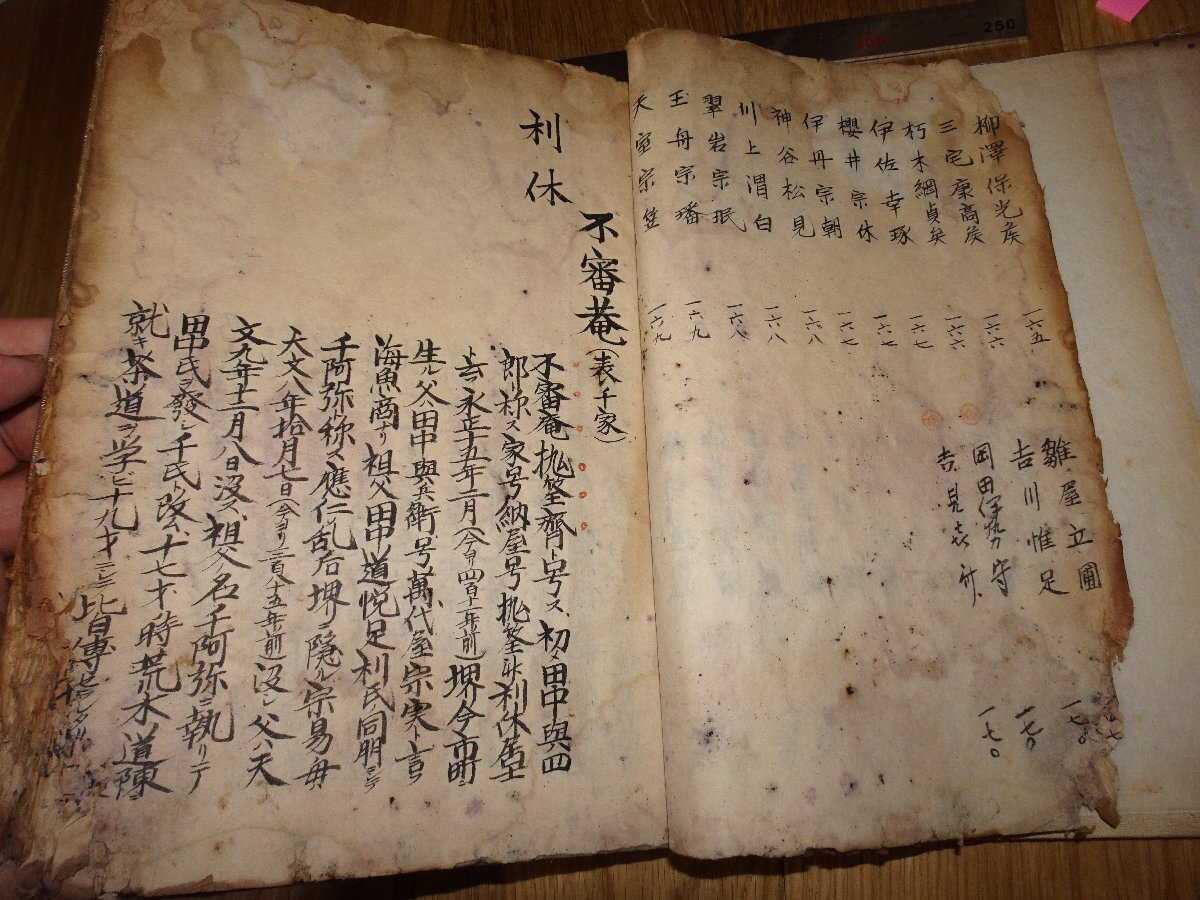 柳澤保光侯 一六五
三宅康高侯 一六六
朽木綱貞侯 一六六
伊佐幸琢 一六七
櫻井宗休 一六七
伊丹宗朝 一六七
神谷松見 一六八
川上渭白 一六八
翠岩宗珉 一六八
玉舟宗璠 一六九
天室宗竺 一六九
雛屋立圃 一七〇
吉川惟足 一七〇
岡田伊勢守 一七〇
吉見喜
不審菴(表千家)
利休
不審庵抛筌齊ト号ス、初メ田中與四
郎ト称ス家号納屋号抛筌
永正十五年二月(今ヨリ四百十一年前)堺今市町ニ
生ル父ハ田中與兵衛号萬代屋宗実ト言フ
海魚商ナリ祖父田中道悦足利氏同朋ニシテ
千阿弥ト称ス應仁乱后堺ニ隠ル宗易母
天文八年拾月七日(今ヨリ三百八十五年前)没シ父ハ天
文九年十二月八日没ス、祖父ノ名千阿弥ニ執リテ
田中氏ヲ發シ千氏ニ改ム、十七才ノ時荒木道陳
就キ茶道ヲ学ビ十九才ニシテ皆傳
250
200